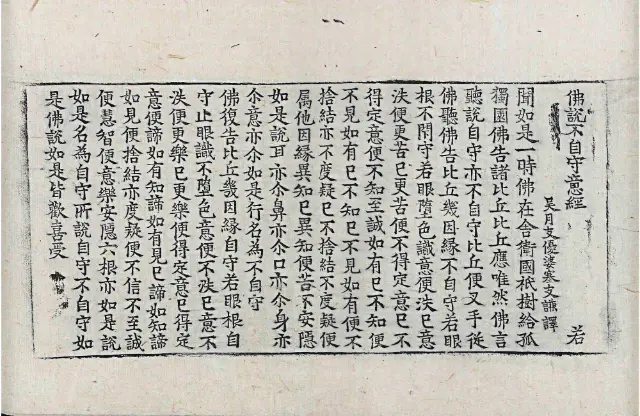 佛説不自守意經 若
吴月支優婆塞支謙譯
聞如是一時佛在舍衛國祇樹給孤
獨園佛告諸比丘比丘應唯然佛言
聽説自守亦不自守比丘便叉手從
佛聽佛告比丘幾因縁不自守若眼
根不閇守若眼墮色識意便泆已意
泆便更苦已更苦便不得定意已不
得定意便不知至誠如有已不知便
不見如有已不知已不見如有便不
捨結亦不度疑已不捨結不度疑便
属他因縁異知已異知便苦不安隱
如是説耳亦尒鼻亦尒口亦尒身亦
尒意亦尒如是行名為不自守
佛復告比丘幾因縁自守若眼根自
守止眼識不墮色意便不泆已意不
泆便更樂已更樂便得定意已得定
意便諦如有知諦如有見已諦如知諦
如見便捨結亦度疑便不信不至誠
便慧智便意樂安隱六根亦如是説
如是名為自守所説自守不自守如
是佛説如是皆歡喜受